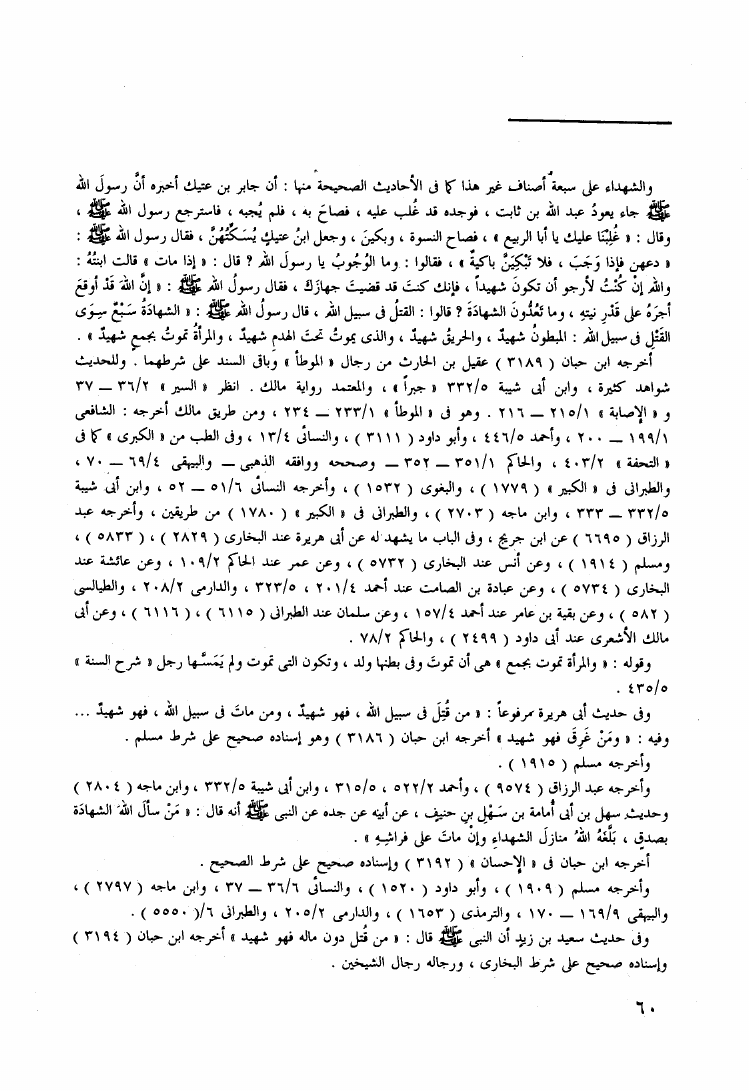 والشهداء على سبعة أصناف غير هذا كما فى الأحاديث الصحيحة منها : أن جابر بن عتيك أخبره أنَّ رسولَ الله
ﷺ جاء يعودُ عبد الله بن ثابت ، فوجده قد غُلب عليه ، فصاحَ به ، فلم يُجبه ، فاسترجع رسول الله ﷺ ،
وقال : « غُلِبْنَا عليك يا أبا الربيع » ، فصاح النسوة ، وبكينَ ، وجعل ابنُ عتيكٍ يُسَكِّتُهُنَّ ، فقال رسول الله ﷺ :
« دعهن فإذا وَجَبَ ، فلا تَبْكِيَنَّ باكيةٌ » ، فقالوا : وما الوُجوبُ يا رسولَ الله ؟ قال : « إذا مات » قالت ابنتُهُ :
والله إنْ كُنْتُ لأرجو أن تكونَ شهيداً ، فإنك كنتَ قد قضيتَ جهازَكَ ، فقال رسولُ الله ﷺ : « إنَّ اللهَ قَدْ أوقعَ
أجرَهُ على قَدْرِ نيتِهِ ، وما تَعُدُّونَ الشهادَةَ ؟ قالوا : القتلُ فى سبيل الله ، قال رسولُ الله ﷺ : « الشهادَةُ سَبْعٌ سِوَى
القَتْلِ فى سبيل الله : المبطونُ شهيدٌ ، والحريقُ شهيدٌ ، والذى يموتُ تحتَ الهدمِ شهيدٌ ، والمرأةُ تموتُ بجمعٍ شهيدٌ » .
أخرجه ابن حبان ( ٣١٨٩ ) عقيل بن الحارث من رجال « الموطأ » وباقى السند على شرطهما . وللحديث
شواهد كثيرة ، وابن أبى شيبة ٣٣٢/٥ « جبراً » ، والمعتمد رواية مالك . انظر « السير » ٣٦/٢ ــ ٣٧
و « الإصابة » ٢١٥/١ ــ ٢١٦ . وهو فى « الموطأ » ٢٣٣/١ ــ ٢٣٤ ، ومن طريق مالك أخرجه : الشافعى
١٩٩/١ ــ ٢٠٠ ، وأحمد ٤٤٦/٥ ، وأبو داود ( ٣١١١ ) ، والنسائى ١٣/٤ ، وفى الطب من « الكبرى » كما فى
« التحفة » ٤٠٣/٢ ، والحاكم ٣٥١/١ ــ ٣٥٢ ــ وصححه ووافقه الذهبى ــ والبيهقى ٦٩/٤ ــ ٧٠ ،
والطبرانى فى « الكبير » ( ١٧٧٩ ) ، والبغوى ( ١٥٣٢ ) ، وأخرجه النسائى ٥١/٦ ــ ٥٢ ، وابن أبى شيبة
٣٣٢/٥ ــ ٣٣٣ ، وابن ماجه ( ٢٧٠٣ ) ، والطبرانى فى « الكبير » ( ١٧٨٠ ) من طريقين ، وأخرجه عبد
الرزاق ( ٦٦٩٥ ) عن ابن جريج ، وفى الباب ما يشهد له عن أبى هريرة عند البخارى ( ٢٨٢٩ ) ، ( ٥٨٣٣ ) ،
ومسلم ( ١٩١٤ ) ، وعن أنس عند البخارى ( ٥٧٣٢ ) ، وعن عمر عند الحاكم ١٠٩/٢ ، وعن عائشة عند
البخارى ( ٥٧٣٤ ) ، وعن عبادة بن الصامت عند أحمد ٢٠١/٤ ، ٣٢٣/٥ ، والدارمى ٢٠٨/٢ ، والطيالسى
( ٥٨٢ ) ، وعن بقية بن عامر عند أحمد ١٥٧/٤ ، وعن سلمان عند الطبرانى ( ٦١١٥ ) ، ( ٦١١٦ ) ، وعن أبى
مالك الأشعرى عند أبى داود ( ٢٤٩٩ ) ، والحاكم ٧٨/٢ .
وقوله : « والمرأة تموت بجمع » هى أن تموتَ وفى بطنها ولد ، وتكون التى تموت ولم يَمَسَّها رجل « شرح السنة »
٤٣٥/٥ .
وفى حديث أبى هريرة مرفوعاً : « من قُتِلَ فى سبيل الله ، فهو شهيدٌ ، ومن ماتَ فى سبيل الله ، فهو شهيدٌ ...
وفيه : « ومَنْ غَرِقَ فهو شهيد » أخرجه ابن حبان ( ٣١٨٦ ) وهو إسناده صحيح على شرط مسلم .
وأخرجه مسلم ( ١٩١٥ ) .
وأخرجه عبد الرزاق ( ٩٥٧٤ ) ، وأحمد ٥٢٢/٢ ، ٣١٥/٥ ، وابن أبى شيبة ٣٣٢/٥ ، وابن ماجه ( ٢٨٠٤ )
وحديث سهل بن أبى أُمامة بن سَهْلِ بنِ حنيف ، عن أبيَه عن جده عن النبى ﷺ أنه قال : « مَنْ سألَ اللهَ الشهادَةَ
بصدقٍ ، بَلَّغَهُ اللهُ منازلَ الشهداءِ وإنْ ماتَ على فراشِهِ » .
أخرجه ابن حبان فى « الإحسان » ( ٣١٩٢ ) وإسناده صحيح على شرط الصحيح .
وأخرجه مسلم ( ١٩٠٩ ) ، وأبو داود ( ١٥٢٠ ) ، والنسائى ٣٦/٦ ــ ٣٧ ، وابن ماجه ( ٢٧٩٧ ) ،
والبيهقى ١٦٩/٩ ــ ١٧٠ ، والترمذى ( ١٦٥٣ ) ، والدارمى ٢٠٥/٢ ، والطبرانى ٦/( ٥٥٥٠ ) .
وفى حديث سعيد بن زيد أن النبى ﷺ قال : « من قُتل دون ماله فهو شهيد » أخرجه ابن حبان ( ٣١٩٤ )
وإسناده صحيح على شرط البخارى ، ورجاله رجال الشيخين .
٦٠